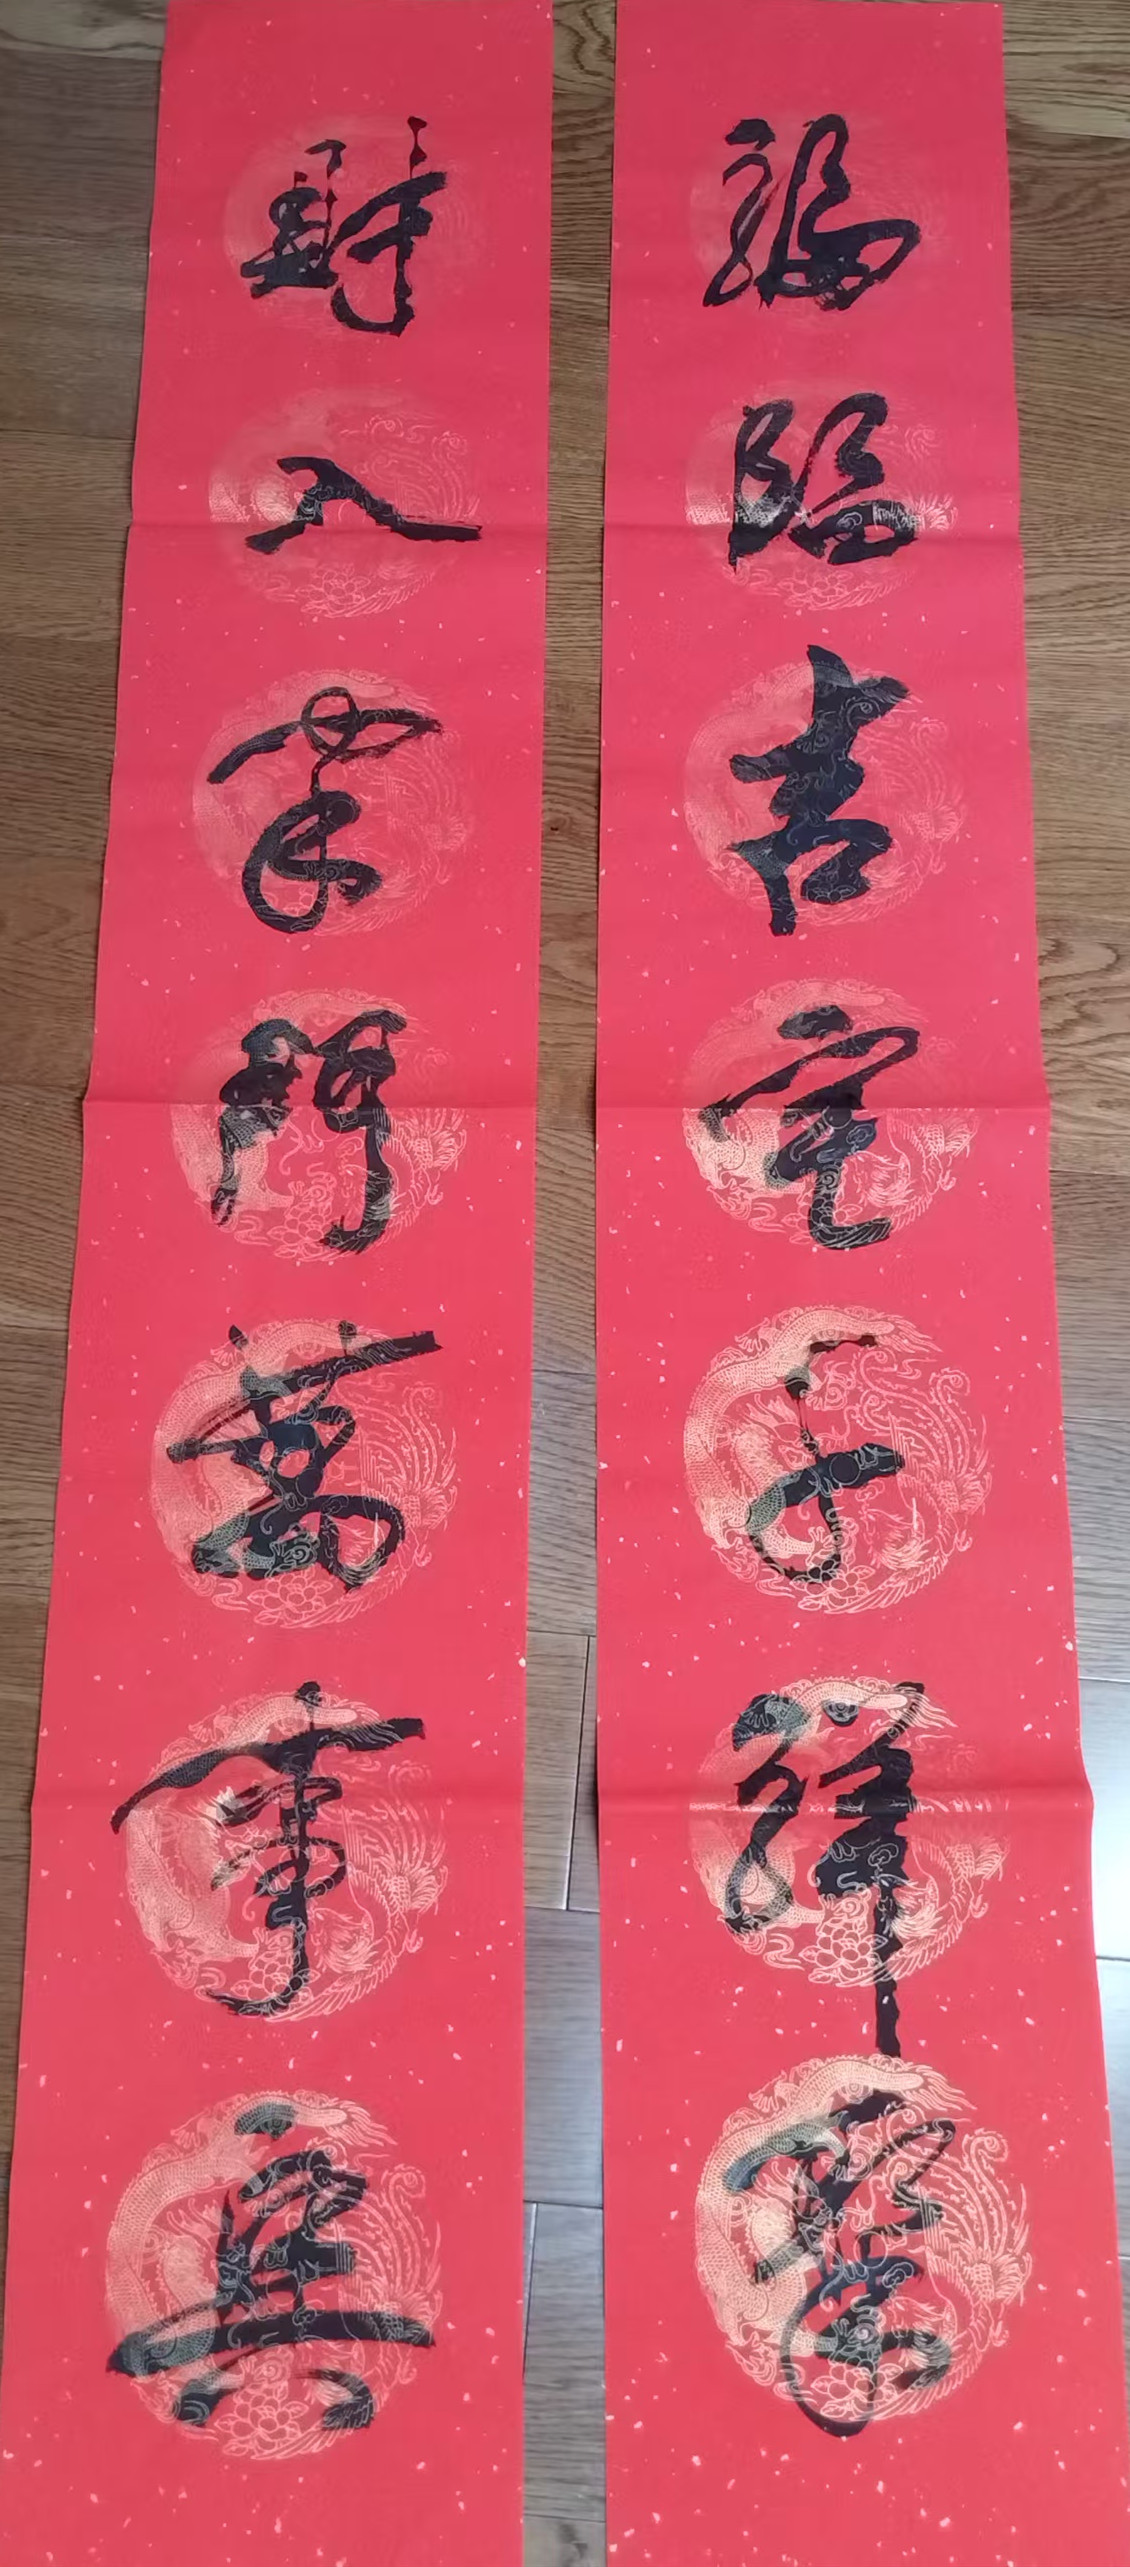 福臨吉宅千祥聚
財入家門萬事興